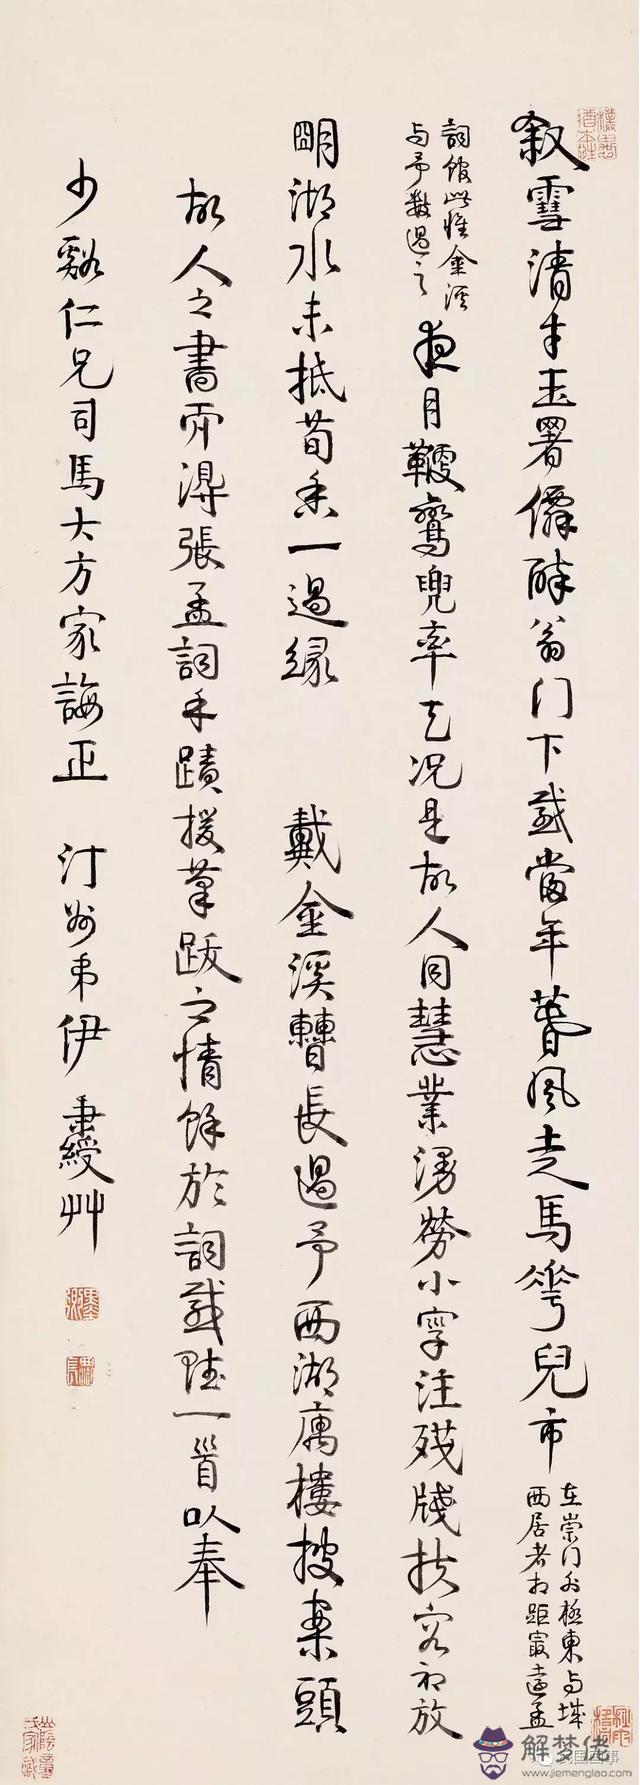 叙雪清才玉署僊醉翁门下感當年春風走馬花兒市
在崇门外極東与城
西居者相距最遠孟
詞館此惟金溪
与予數過之
夜月鞭鸞兜率天况是故人同慧業漫勞小字注殘牋扶容初放
明湖水未抵荀香一過緣 戴金溪曹長過予西湖寓樓搜案頭
故人之書而得張孟詞手蹟援筆跋之情餘於詞感賦一首以奉
少谿仁兄司馬大方家誨正 汀州弟伊秉綬艸
解梦佬
www.jiemengliao.com